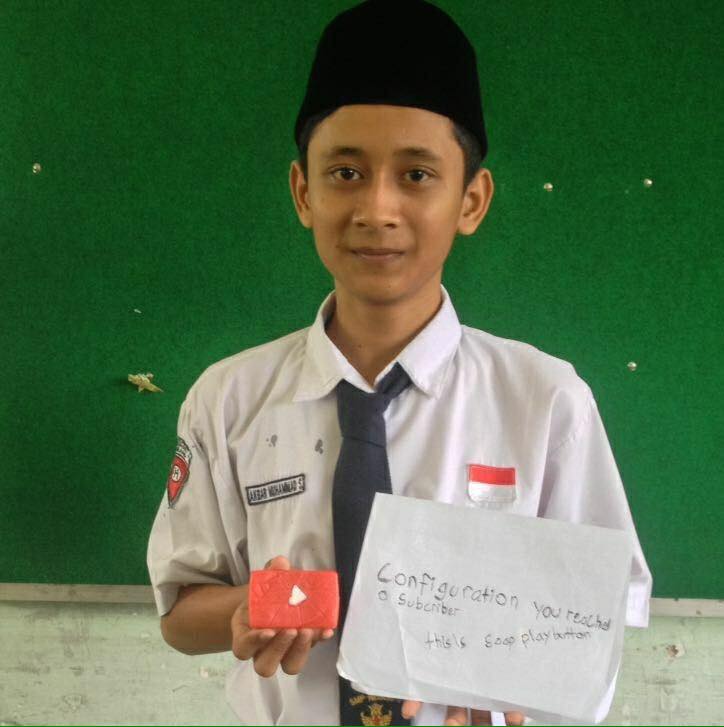 AKBAR MUHAMMAD S
Configuration You reached
0 Subcriber
this is Soap play button
SMP